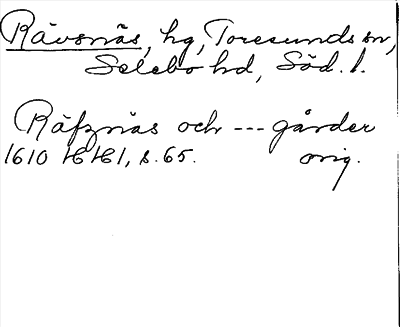 Rävsnäs, hg, Toresunds sn,
Selebo hd, Söd. l.
Räfznäs och --- gårder
1610 HH 1, s. 65. orig.